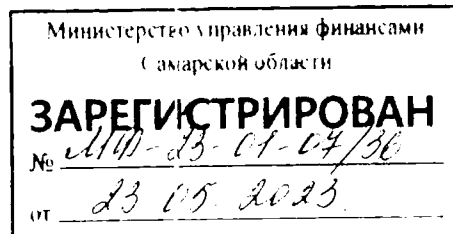 Министерство управления финансами
Самарской области
ЗАРЕГИСТРИРОВАН
№ МФ-23-01-07/36
от 23.05.2023